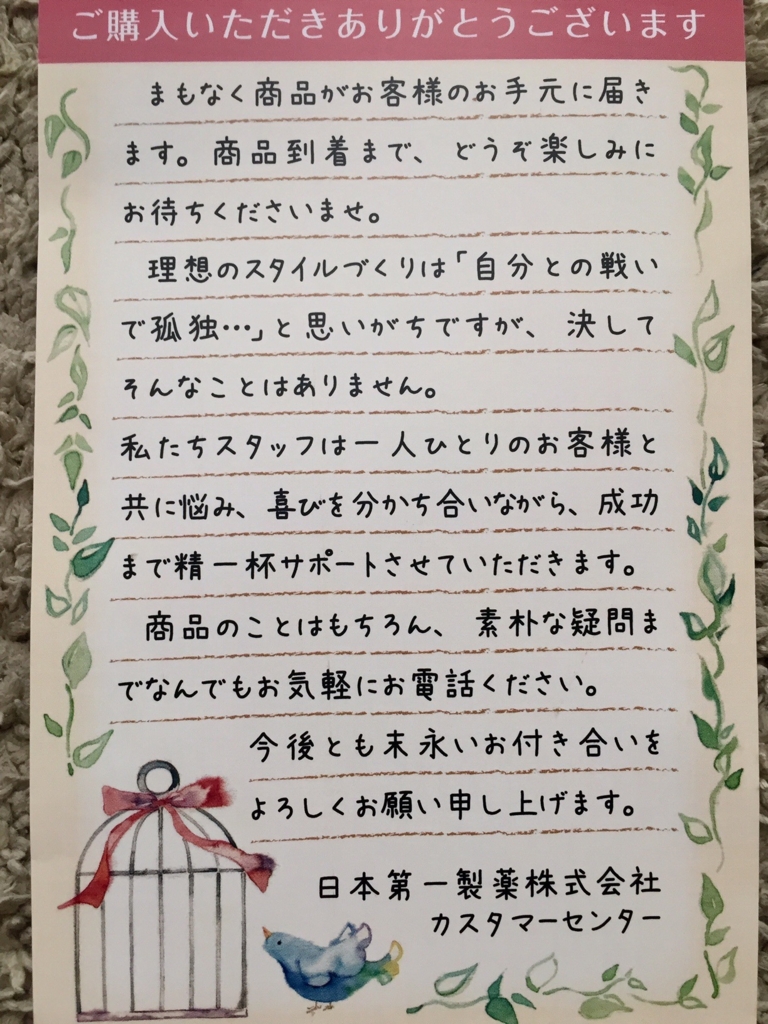 ご購入いただきありがとうございます
まもなく商品がお客様のお手元に届き
ます。商品到着まで、どうぞ楽しみに
お待ちくださいませ。
理想のスタイルづくりは「自分との戦い
で孤独…」と思いがちですが、決して
そんなことはありません。
私たちスタッフは一人ひとりのお客様と
共に悩み、喜びを分かち合いながら、成功
まで精一杯サポートさせていただきます。
商品のことはもちろん、素朴な疑問ま
でなんでもお気軽にお電話ください。
今後とも末永いお付き合いを
よろしくお願い申し上げます。
日本第一製薬株式会社
カスタマーセンター